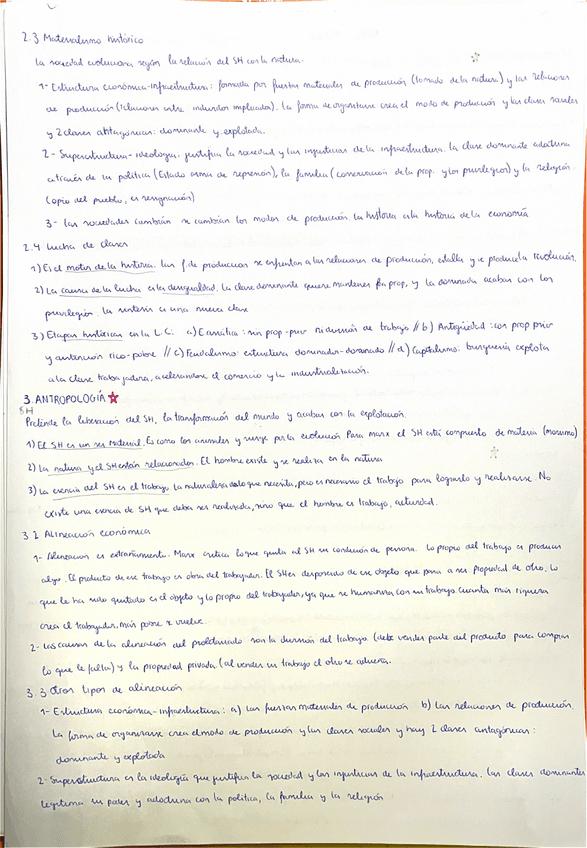 2.3 Materialismo histórico
La sociedad evoluciona según la relación del SH con la natura.
1- Estructura económica-infraestructura: formada por fuerzas materiales de producción (tomado de la natura) y las relaciones
de producción (relaciones entre individuos implicados). La forma de organizarse crea el modo de producción y las clases sociales
y 2 clases antagónicas: dominante y explotada.
2- Superestructura-ideología: justifica la sociedad y las injusticias de la infraestructura. La clase dominante adoctrina
a través de su política (Estado arma de represión), la familia (conservación de la prop. y los privilegios) y la religión
(opio del pueblo, es resignación)
3- las sociedades cambian si cambian los modos de producción. La historia es la historia de la economía
2.4 Lucha de clases
1) Es el motor de la historia. Las f de producción se enfrentan a las relaciones de producción, estalla y se produce la revolución.
2) La causa de la lucha es la desigualdad. La clase dominante quiere mantener la prop, y la dominada acabar con los
privilegios. La síntesis es una nueva clase
3) Etapas históricas en la L.C: a) E. asiática: sin prop-priv ni división de trabajo // b) Antigüedad: con prop priv
y distinción rico-pobre // c) Feudalismo: estructura dominador-dominado // d) Capitalismo: burguesía explota
a la clase trabajadora, acelerándose el comercio y la industrialización.
3. ANTROPOLOGÍA
SH
Pretende la liberación del SH, la transformación del mundo y acabar con la explotación.
1) El SH es un ser material. Es como los animales y surge por la evolución. Para Marx el SH está compuesto de materia (monismo)
2) La natura y el SH están relacionados. El hombre existe y se realiza en la natura
3) La esencia del SH es el trabajo. La naturaleza da lo que necesita, pero es necesario el trabajo para lograrlo y realizarse. No
existe una esencia de SH que deba ser realizada, sino que el hombre es trabajo, actividad.
3.2 Alineación económica
1- Alineación es extrañamiento. Marx critica lo que quita al SH su condición de persona. Lo propio del trabajo es producir
algo. El producto de ese trabajo es obra del trabajador. El SH es desposeído de ese objeto que pasa a ser propiedad de otro. Lo
que le ha sido quitado es el objeto y lo propio del trabajador, ya que se humaniza con su trabajo. Cuanta más riqueza
crea el trabajador, más pobre se vuelve.
2- Las causas de la alineación del proletariado son la división del trabajo (debe vender parte del producto para comprar
lo que le falta) y la propiedad privada (al vender su trabajo el otro se adueña.
3.3 Otros tipos de alineación
1- Estructura económica-infraestructura: a) las fuerzas materiales de producción b) las relaciones de producción
La forma de organizarse crea el modo de producción y las clases sociales y hay 2 clases antagónicas:
dominante y explotada
2- Superestructura es la ideología que justifica la sociedad y las injusticias de la infraestructura. Las clases dominantes
legitima su poder y adoctrina con la política, la familia y la religión